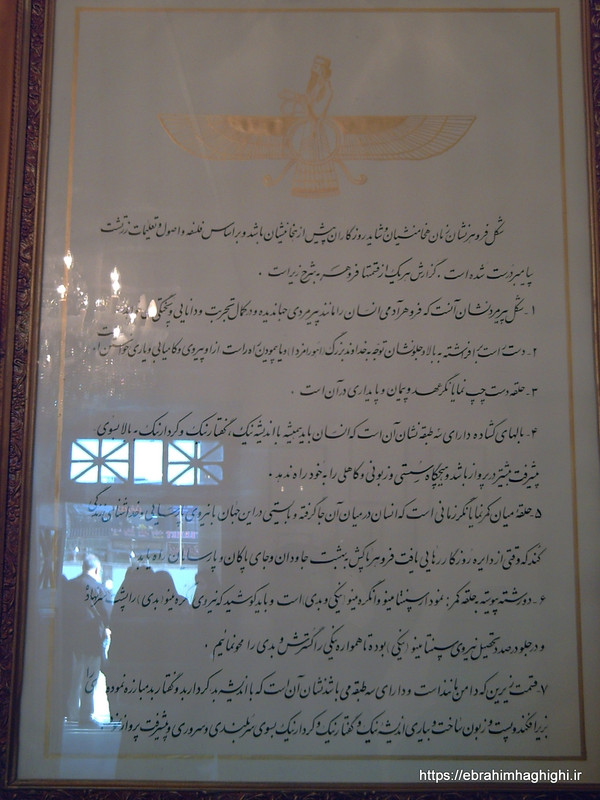 شکل فروهر نشان زمان هخامنشیان و شاید روزگاران پیش از هخامنشیان باشد و براساس فلسفه و اصول و تعلیمات زرتشت
پیامبر درست شده است. گزارش هر یک از قسمتها فروهر به شرح زیر است.
۱- شکل پیرمرد نشان آنست که فروهر آدمی انسان را مانند پیرمردی جهاندیده و در کمال تجربت و دانایی و پختگی
۲- دست راست برافراشته به بالا و جلو نشان توجه به خداوند بزرگ (اهورامزدا) و یا پیمودن راه راست از او پیروی و کامیابی و یاری خواستن
۳- حلقه دست چپ نمایانگر عهد و پیمان و پایداری در آن است.
۴- بالهای گشاده دارای سه طبقه نشان آن است که انسان باید همیشه با اندیشه نیک، گفتار نیک و کردار نیک به بالا بسوی
پیشرفت بیشتر در پرواز باشد و هیچگاه سستی و زبونی و کاهلی را به خود راه ندهد.
۵- حلقه میان کمر نمایانگر زمانی است که انسان در میان آن جا گرفته و بایستی در این جهان با نیروی پارسایی و خداشناسی زندگی
کند که وقتی از دایره روزگار رهایی یافت فروهر پاکش به بهشت جاودان و جای پاکان و پارسایان راه یابد
۶- دو رشته پیوسته به حلقه کمر: نمودار سپنتا مینو و انگره مینو (نیکی و بدی) است و باید کوشید که نیروی انگره مینو (بدی) را پشت سر نهاده
و در جلو در صدد تحصیل نیروی سپنتا مینو (نیکی) بوده تا همواره نیکی را گسترش و بدی را محو نمائیم.
۷- قسمت زیرین که دامن مانند است و دارای سه طبقه می باشد نشان آن است که با اندیشه بد کردار بد و گفتار بد مبارزه نموده
بزیر افکند و پست و زبون ساخت و بیاری اندیشه نیک و گفتار نیک و کردار نیک بسوی سربلندی و سروری و پیشرفت پرواز نمود.
https://ebrahimhaghighi.ir